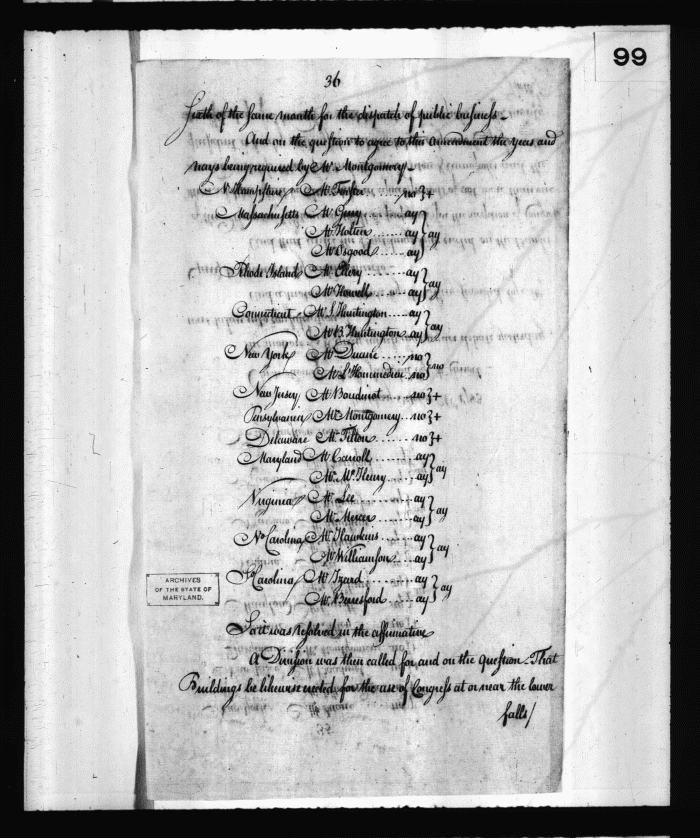 99
36
Sixth of the same month for the dispatch of public business.
And on the question to agree to this amendment the yeas and
nays being required by Mr. Montgomery.
N. Hampshire Mr. Foster ...... no }+
Massachusetts Mr. Gerry ...... ay } ay
Mr. Holten ...... ay
Mr. Osgood ...... ay
Rhode Island Mr. Ellery ...... ay } ay
Mr. Howell ...... ay
Connecticut Mr. S. Huntington ...... ay } ay
Mr. B. Huntington ... ay
New York Mr. Duane ...... no } no
Mr. L'Hommedieu .. no
New Jersey Mr. Boudinot ...... no }+
Pensylvania Mr. Montgomery ... no }+
Delaware Mr. Tilton ...... no }+
Maryland Mr. Carroll ...... ay } ay
Mr. McHenry ...... ay
Virginia Mr. Lee ...... ay } ay
Mr. Mercer ...... ay
No. Carolina Mr. Hawkins ...... ay } ay
Mr. Williamson ... ay
So. Carolina Mr. Izard ...... ay } ay
Mr. Beresford ...... ay
ARCHIVES
OF THE STATE OF
MARYLAND.
So it was resolved in the affirmative
A Division was then called for and on the question. That
Buildings be likewise erected for the use of Congress at or near the lower
falls/